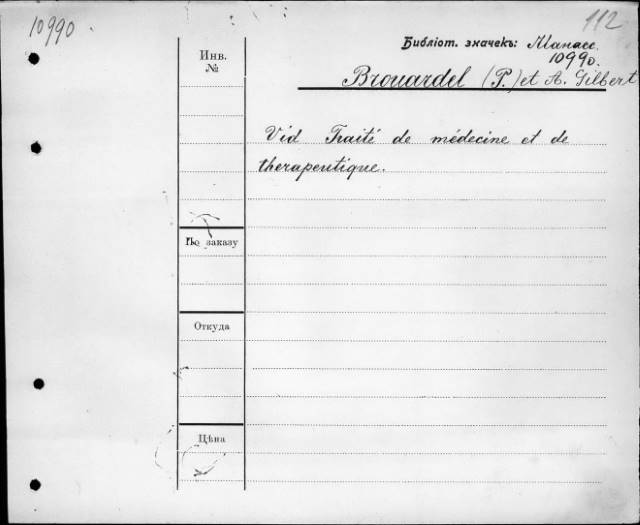 10990.
112
Библіот. значекъ: Manacc.
10990.
Инв.
№
Brouardel (P.) et A. Gilbert
Vid Traité de médecine et de
therapeutique.
По заказу
Откуда
Цѣна